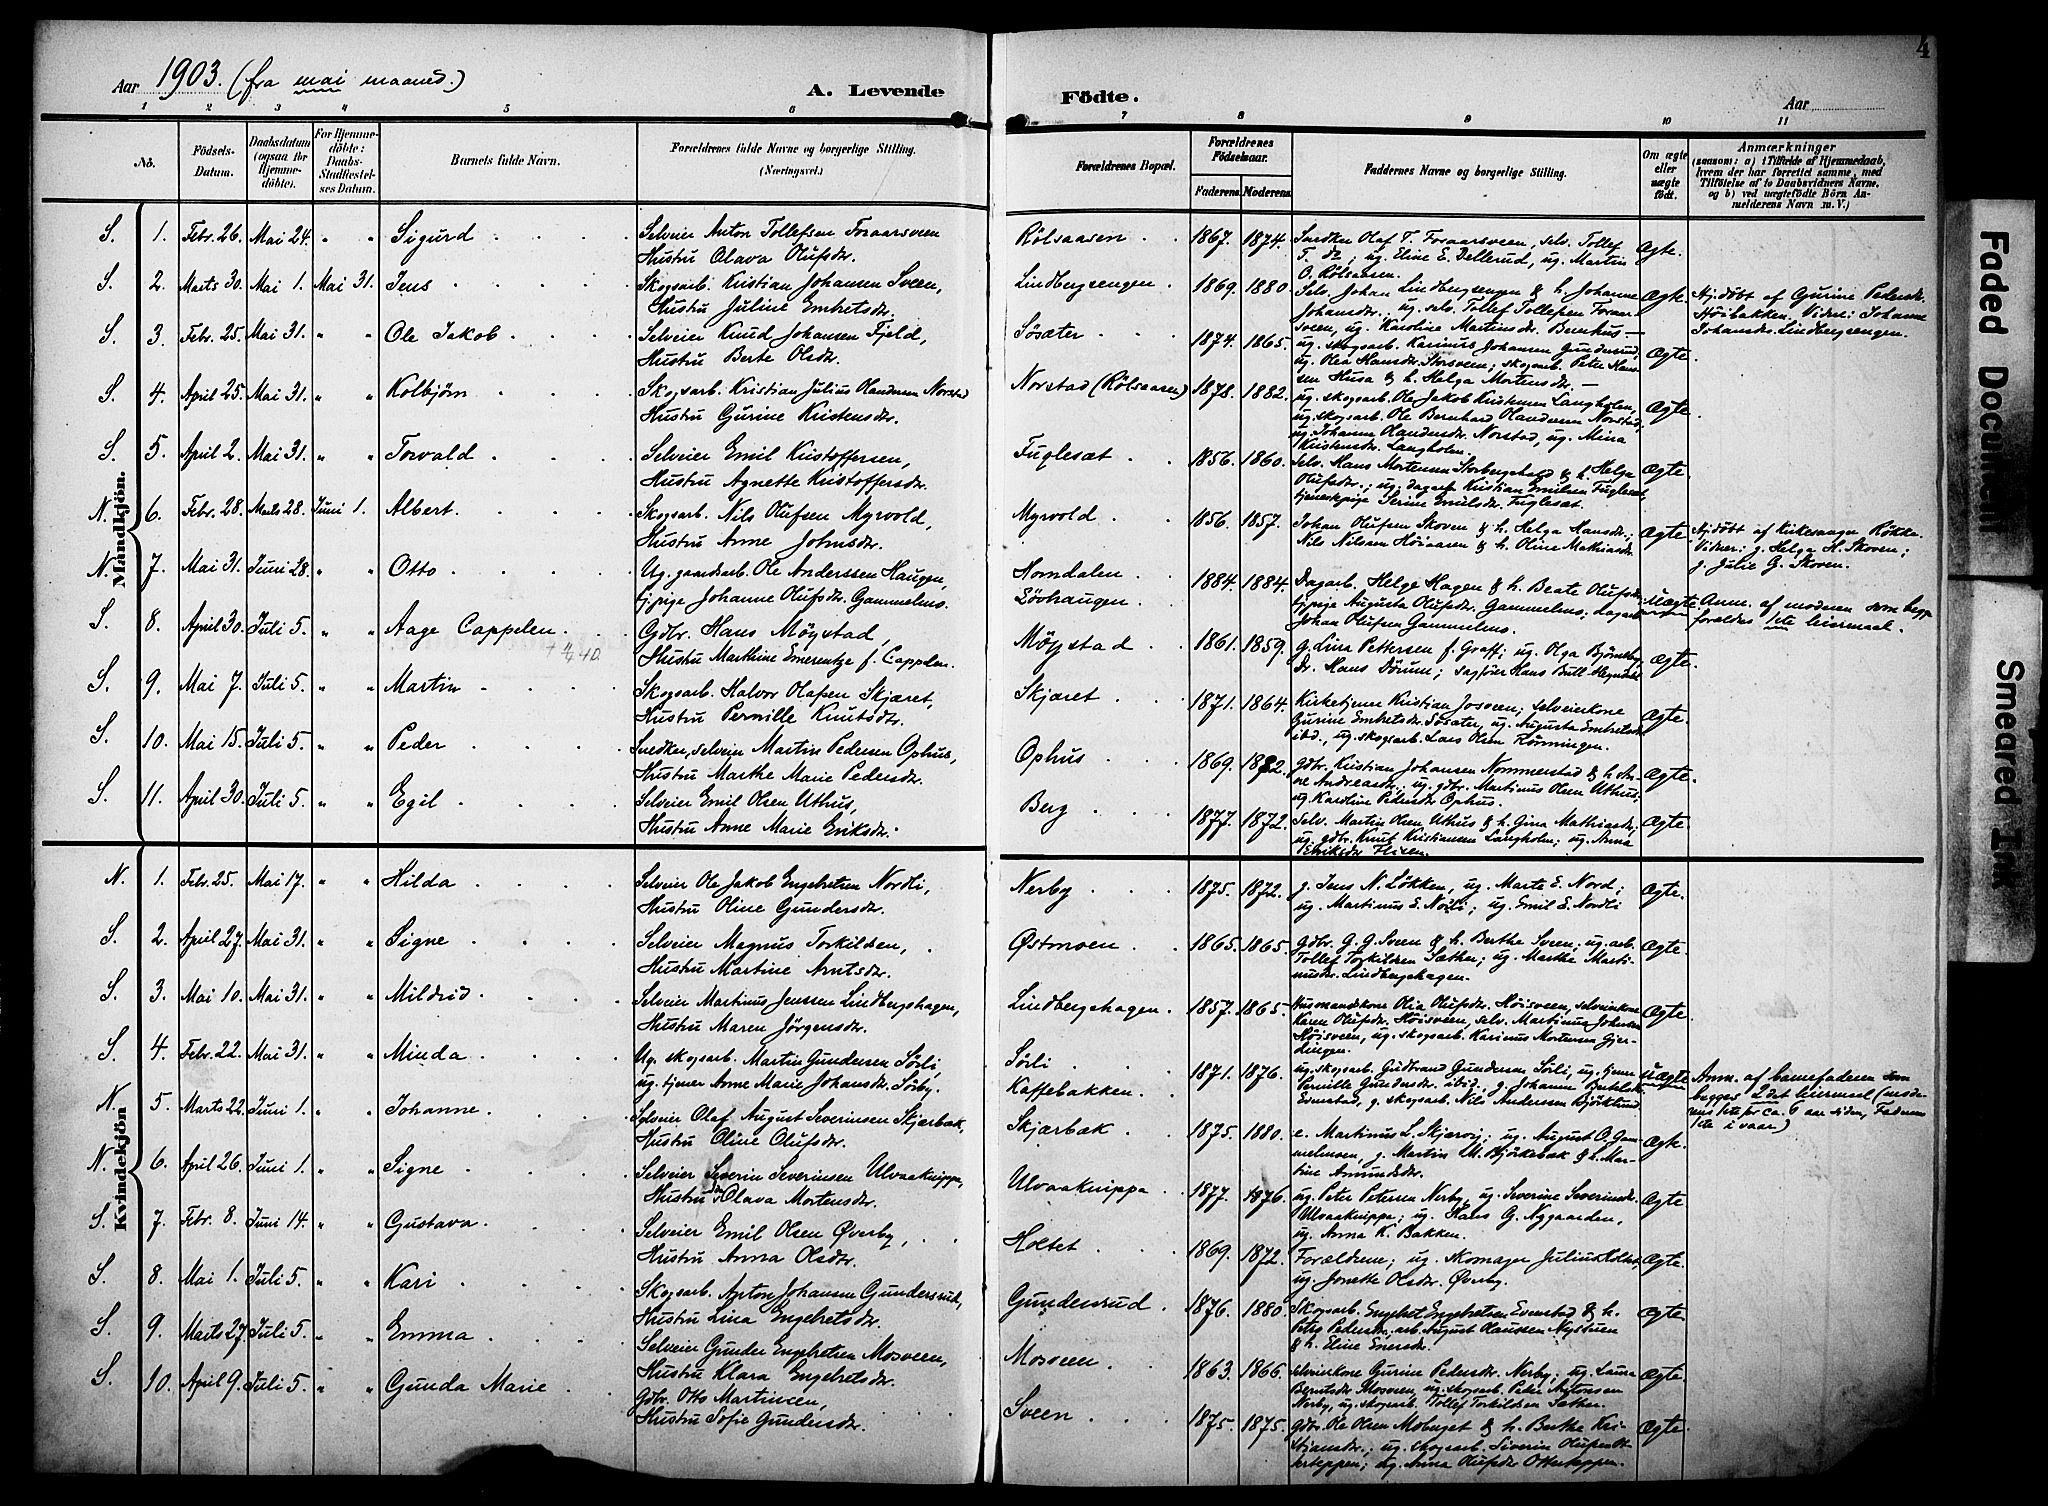 4
Aar 1903. (fra mai maaned.)
A. Levende Födte.
Aar
1 2 3 4 5 6 7 8 9 10 11
No.
Födsels-Datum.
Daabsdatum (ogsaa for Hjemmedöbte).
For Hjemmedöbte: Daabs-Stadfæstelses Datum.
Barnets fulde Navn.
Forældrenes fulde Navne og borgerlige Stilling. (Næringsvei.)
Forældrenes Bopæl.
Forældrenes Födselsaar.
Faderens. Moderens.
Faddernes Navne og borgerlige Stilling.
Om ægte eller uægte födt.
Anmærkninger
(saasom: a) i Tilfælde af Hjemmedaab, hvem der har forrettet samme, med Tilföielse af to Daabsvidners Navne, og b) ved uægtefödte Börn Anmelderens Navn m. V.)
Mandkjön.
S. 1. Febr. 26. Mai 24. " " Sigurd
Selveier Anton Tollefsen Foraarsveen
Hustru Olava Olufsdr.
Rölsaasen 1867. 1874.
Snedker Olaf T. Foraarsveen, selv. Tollef
T. do; ug. Eline E. Dellerud, ug. Martin
O. Rölsaasen.
Ægte.
S. 2. Marts 30. Mai 1. Mai 31. Jens
Skogsarb. Kristian Johansen Sveen,
Hustru Juline Embretsdr.
Lindbergsengen 1869. 1880.
Selv. Johan Lindbergsengen & h. Johanne
Johansdr.; ug. selv. Tollef Tollefsen Foraar-
sveen, ug. Karoline Martinsdr. Berrhus —
Ægte.
Hj.döbt af Gurine Pedersdr.
Höibakken. Vidner: Johanne
Johansdr. Lindbergsengen.
S. 3. Febr. 25. Mai 31. " " Ole Jakob
Selveier Knud Johansen Fjeld,
Hustru Berte Olsdr.
Søsæter 1874. 1865.
ug. skogsarb. Karinus Johansen Gundersrud,
ug. Olea Hansdr. Storsveen; skogsarb. Peter Han-
sen Husa & h. Helga Mortensdr. —
Ægte
S. 4. April 25. Mai 31. " " Kolbjörn
Skogsarb. Kristian Julius Olandersen Norstad
Hustru Gurine Kristensdr.
Norstad (Rölsaasen) 1878. 1882.
ug. skogsarb. Ole Jakob Kristensen Langholen,
ug. skogsarb. Ole Bernhard Olandersen Norstad,
ug. Johanne Olandersdr. Norstad, ug. Mina
Kristensdr. Langholen.
Ægte.
S. 5. April 2. Mai 31. " " Torvald
Selveier Emil Kristoffersen,
Hustru Agnette Kristoffersdr.
Fuglesæt 1856. 1860.
Selv. Hans Mortensen Storbergshold & h. Helga
Olufsdr.; ug. dagarb. Kristian Emilsen Fuglesæt,
tjenestepige Serine Emilsdr. Fuglesæt.
Ægte.
N. 6. Febr. 28. Marts 28. Juni 1. Albert.
Skogsarb. Nils Olufsen Myrvold,
Hustru Anne Johnsdr.
Myrvold 1856. 1857.
Johan Olufsen Skoven & h. Helga Hansdr.;
Nils Nilsen Höiaasen & h. Oline Mathiasdr.
Ægte.
Hj.döbt af Kirkesanger Rökke.
Vidner: g. Helga H. Skoven;
g. Julie G. Skoven.
N. 7. Mai 31. Juni 28. " " Otto
Ug. gaardsarb. Ole Anderssen Haugen,
tj.pige Johanne Olufsdr. Gammelmo.
Nomdalen
Lövhaugen
1884. 1884.
Dagarb. Helge Hagen & h. Beate Olufsdr.
tj.pige Augusta Olufsdr. Gammelmo, dagarb.
Johan Olufsen Gammelmo.
Uægte
Anm. af moderen som begge
forældres 1ste leiermaal.
S. 8. April 30. Juli 5. " " Aage Cappelen
Gdbr. Hans Möystad,
Hustru Marthine Emerentze f. Cappelen.
Möystad 1861. 1859.
g. Lina Pettersen f. Graff; ug. Olga Björneby,
Dr. Hans Dörum; sagförer Hans Bull
Ægte.
S. 9. Mai 7. Juli 5. " " Martin
Skogsarb. Halvor Olafsen Skjæret,
Hustru Pernille Knutsdr.
Skjæret 1871. 1864.
Kirketjener Kristian Josveen; selveierkone
Gurine Embretsdr. Søsæter, ug. Augusta Embretsdr.
ibd., ug. skogsarb. Lars Olsen Rönningen.
Ægte.
S. 10. Mai 15. Juli 5. " " Peder
Snedker, selveier Martin Pedersen Ophus,
Hustru Marthe Marie Pedersdr.
Ophus 1869. 1872.
Gdbr. Kristian Johansen Nommerstad & h. An-
ne Andreasdr.; ug. gdbr. Martinus Olsen Uthus,
ug. Karoline Pedersdr. Ophus.
Ægte.
S. 11. April 30. Juli 5. " " Egil
Selveier Emil Olsen Uthus,
Hustru Anne Marie Eriksdr.
Berg 1877. 1872.
Selv. Martin Olsen Uthus & h. Gina Mathiasdr.,
ug. gdbr. Knut Kristiansen Langholen; ug. Anna
Eriksdr.
Ægte.
Kvindekjön
N. 1. Febr. 25. Mai 17. " " Hilda
Selveier Ole Jakob Engebretsen Nordli,
Hustru Oline Gundersdr.
Nerby 1875. 1872.
g. Jens N. Lökken, ug. Marte E. Nord;
ug. Martinus E. Nordli; ug. Emil E. Nordli
Ægte.
S. 2. April 27. Mai 31. " " Signe
Selveier Magnus Torkildsen,
Hustru Martine Arntsdr.
Østmoen 1865. 1865.
Gdbr. G. G. Sveen & h. Berthe Sveen; ug. arb.
Tollef Torkildsen Sæther; ug. Marthe Marti-
nusdr. Lindbergshagen.
Ægte.
S. 3. Mai 10. Mai 31. " " Mildrid
Selveier Martinus Jenssen Lindbergshagen,
Hustru Maren Jörgensdr.
Lindbergshagen. 1857. 1865.
Husmandskone Olia Olufsdr. Höisveen, selveierkone
Karen Olufsdr. Höisveen, selv. Martinus Johnsen
Höisveen, ug. skogsarb. Karinus Mortensen Gjer-
dingen.
Ægte.
S. 4. Febr. 22. Mai 31. " " Minda
Ug. skogsarb. Martin Gundersen Sörli,
ug. tjener Anne Marie Johansdr. Sörby.
Sörli
Kaffebakken
1871. 1876.
ug. skogsarb. Gudbrand Gundersen Sörli; ug. tjener
Pernille Gundersdr. ibid., g. Johanne Bertelsdr.
Evenstad, g. skogsarb. Nils Andersen Björklund.
Uægte
Anm. af barnefaderen som
begges 2det leiermaal (mode-
rens 1ste for ca. 6 aar siden, Faderens
1ste i vaar.)
N. 5. Marts 22. Juni 1. " " Johanne
Selveier Olaf August Severinsen Skjærbæk,
Hustru Oline Olufsdr.
Skjærbæk 1875. 1880.
e. Martinus L. Skjærvoj; ug. August O. Gam-
melmoen, g. Martin M. Björkebæk & h. Mar-
tine Amundsdr.
Ægte.
N. 6. April 26. Juni 1. " " Signe
Selveier Severin Severinsen Ulvaaknippa,
Hustru Olava Mortensdr.
Ulvaaknippa 1877. 1876.
ug. Peter Petersen Nerby, ug. Severine Severinsdr.
Ulvaaknippa; ug. Hans G. Nygaarden,
ug. Anna K. Bakken.
Ægte
S. 7. Febr. 8. Juni 14. " " Gustava
Selveier Emil Olsen Øverby,
Hustru Anna Olsdr.
Holtet 1869. 1872.
Forældrene; ug. skomager Julius Holtet,
ug. Jonette Olsdr. Øverby.
Ægte.
S. 8. Mai 1. Juli 5. " " Kari
Skogsarb. Anton Johansen Gundersrud,
Hustru Lina Engebretsdr.
Gundersrud 1876. 1880.
Skogsarb. Engebret Engebretsen Evenstad & h.
Petra Pedersdr., arb. August Olaussen Nystuen
& h. Eline Enersdr.
Ægte.
S. 9. Marts 27. Juli 5. " " Emma
Selveier Gunder Engebretsen Mosveen,
Hustru Klara Engebretsdr.
Mosveen 1863. 1866.
Selveierkone Gurine Pedersdr. Nerby; ug. Laura
Berntsdr. Mosveen, ug. skogsarb. Peter Antonsen
Nerby, ug. skogsarb. Tollef Torkildsen Sæther.
Ægte.
S. 10. April 9. Juli 5. " " Gunda Marie
Gdbr. Otto Martinsen,
Hustru Sofie Gundersdr.
Sveen 1875. 1875.
Gdbr. Ole Olsen Moberget & h. Berthe Kri-
stiansdr.; ug. skogsarb. Severin Olufsen Ot-
terteppen; ug. Anna Olufsdr. Otterteppen.
Ægte.
Faded Document
Smeared Ink